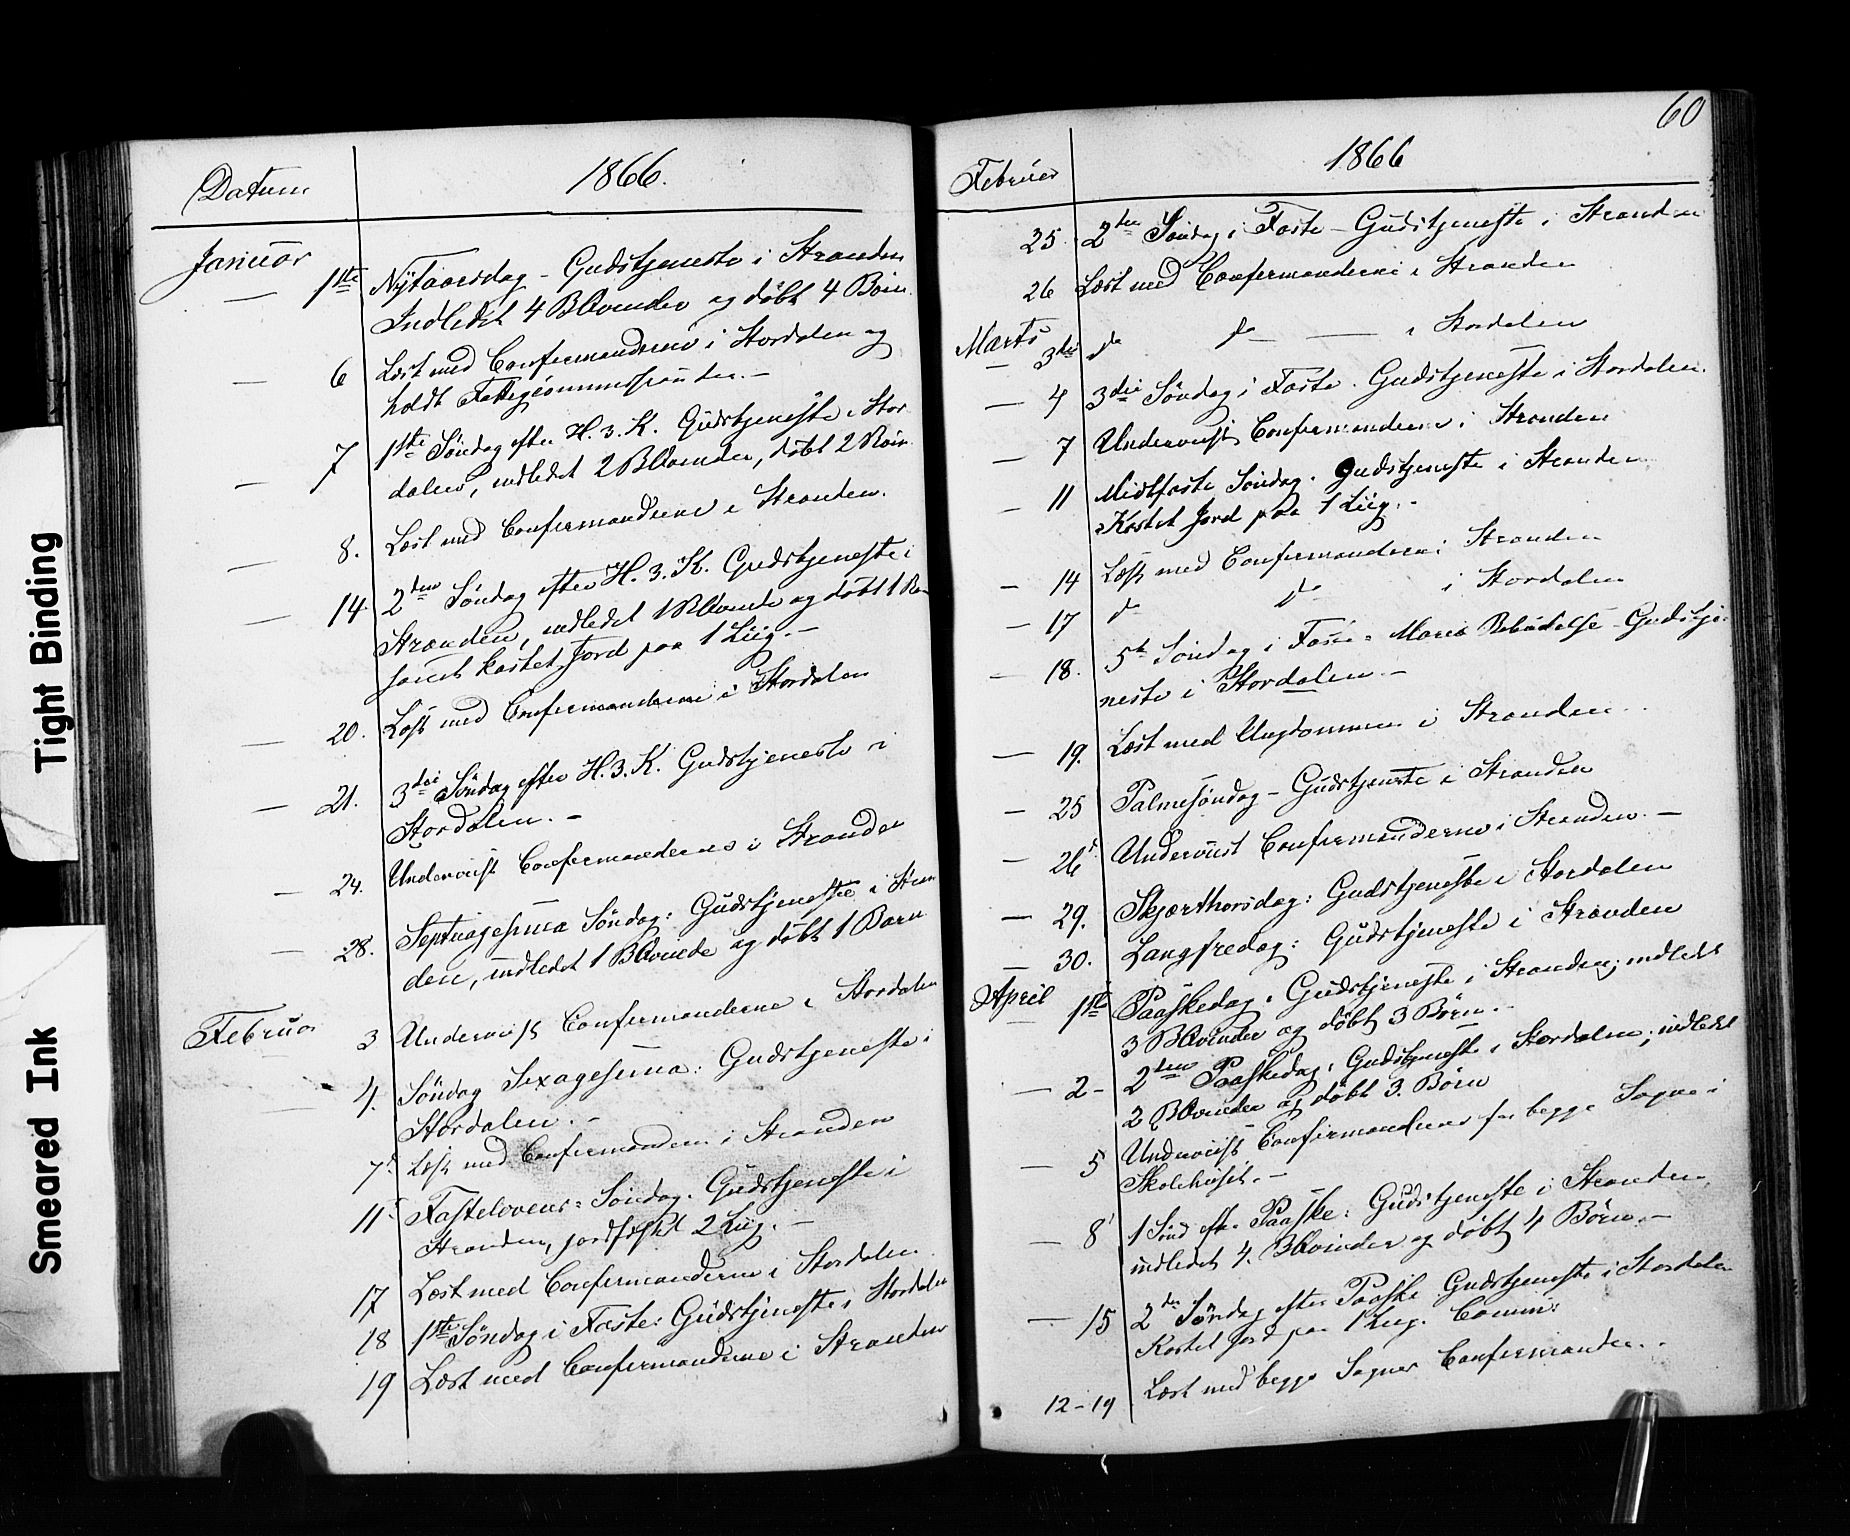 Tight Binding
Smeared Ink
Datum 1866.
Januar 1ste Nytaarsdag - Gudstjeneste i Stranden
Indledet 4 BQvinder og døbt 4 Børn
— 6 Læst med Confirmanderne i Stordalen og
holdt
— 7 1ste Søndag efter H. 3. K. Gudstjeneste i Stor
dalen, indledet 2 BQvinder, døbt 2 Børn
— 8. Læst med Confirmanderne i Stranden.
— 14 2den Søndag efter H. 3. K. Gudstjeneste i
Stranden, indledet 1 BQvinde og døbt 1 Barn
samt kastet Jord paa 1 Liig. –
— 20. Læst med Confirmanderne i Stordalen
— 21. 3die Søndag efter H. 3. K. Gudstjeneste i
Stordalen. –
— 24. Underviist Confirmanderne i Stranden
— 28. Septuagesima Søndag: Gudstjeneste i Stran
den, indledet 1 BQvinde og døbt 1 Barn
Februar 3 Underviist Confirmanderne i Stordalen
4. Søndag Sexagesima: Gudstjeneste i
Stordalen. –
7d Læst med Confirmanderne i Stranden
11t Fastelavens-Søndag. Gudstjeneste i
Stranden, jordfæstet 2 Liig. –
17 Læst med Confirmanderne i Stordalen
18 1ste Søndag i Faste: Gudstjeneste i Stordalen
19 Læst med Confirmanderne i Stranden
60
Februar 1866
25 2den Søndag i Faste - Gudstjeneste i Stranden
26 Læst med Confermanderne i Stranden
Marts
— 3die do do — i Stordalen
— 4 3die Søndag i Faste. Gudstjeneste i Stordalen.
— 7 Underviist Confermanderne i Stranden
— 11 Midtfaste Søndag. Gudstjeneste i Stranden
Kastet Jord paa 1 Liig. –
— 14 Læst med Confermanderne i Stranden
— 17 do do i Stordalen
— 18. 5te Søndag i Faste = Maria Bebudelse - Gudstje-
neste i Stordalen. –
— 19. Læst med Ungdommen i Stranden.
— 25 Palmesøndag - Gudstjeneste i Stranden
— 26d Underviist Confermanderne i Stranden. –
— 29. Skjærthorsdag: Gudstjeneste i Stordalen
— 30. Langfredag: Gudstjeneste i Stranden
April 1ste Paaskedag: Gudstjeneste i Stranden; indledt
3 BQvinder og døbt 3 Børn. –
— 2 – 2den Paaskedag: Gudstjeneste i Stordalen; indledt
2 BQvinder og døbt 3. Børn
— 5 Underviist Confirmanderne for begge Sogne i
Skolehuset. –
— 8 1 Sønd eft. Paaske: Gudstjeneste i Stranden,
indledet 4. BQvinder og døbt 4 Børn. –
— 15 2den Søndag efter Paaske Gudstjeneste i Stordalen
Kastet Jord paa 1 Liig. Comm:
12 – 19 Læst med begge Sognes Confermander. –